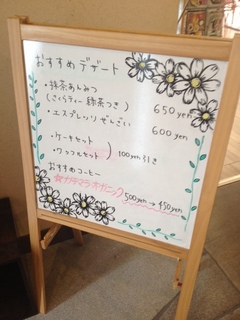 おすすめデザート
・抹茶あんみつ 650yen
(さくらティー 緑茶つき)
・エスプレッソぜんざい 600yen
・ケーキセット
・ワッフルセット ) 100yen引き
おすすめコーヒー
☆ガテマラ・オーガニック 500yen→450yen